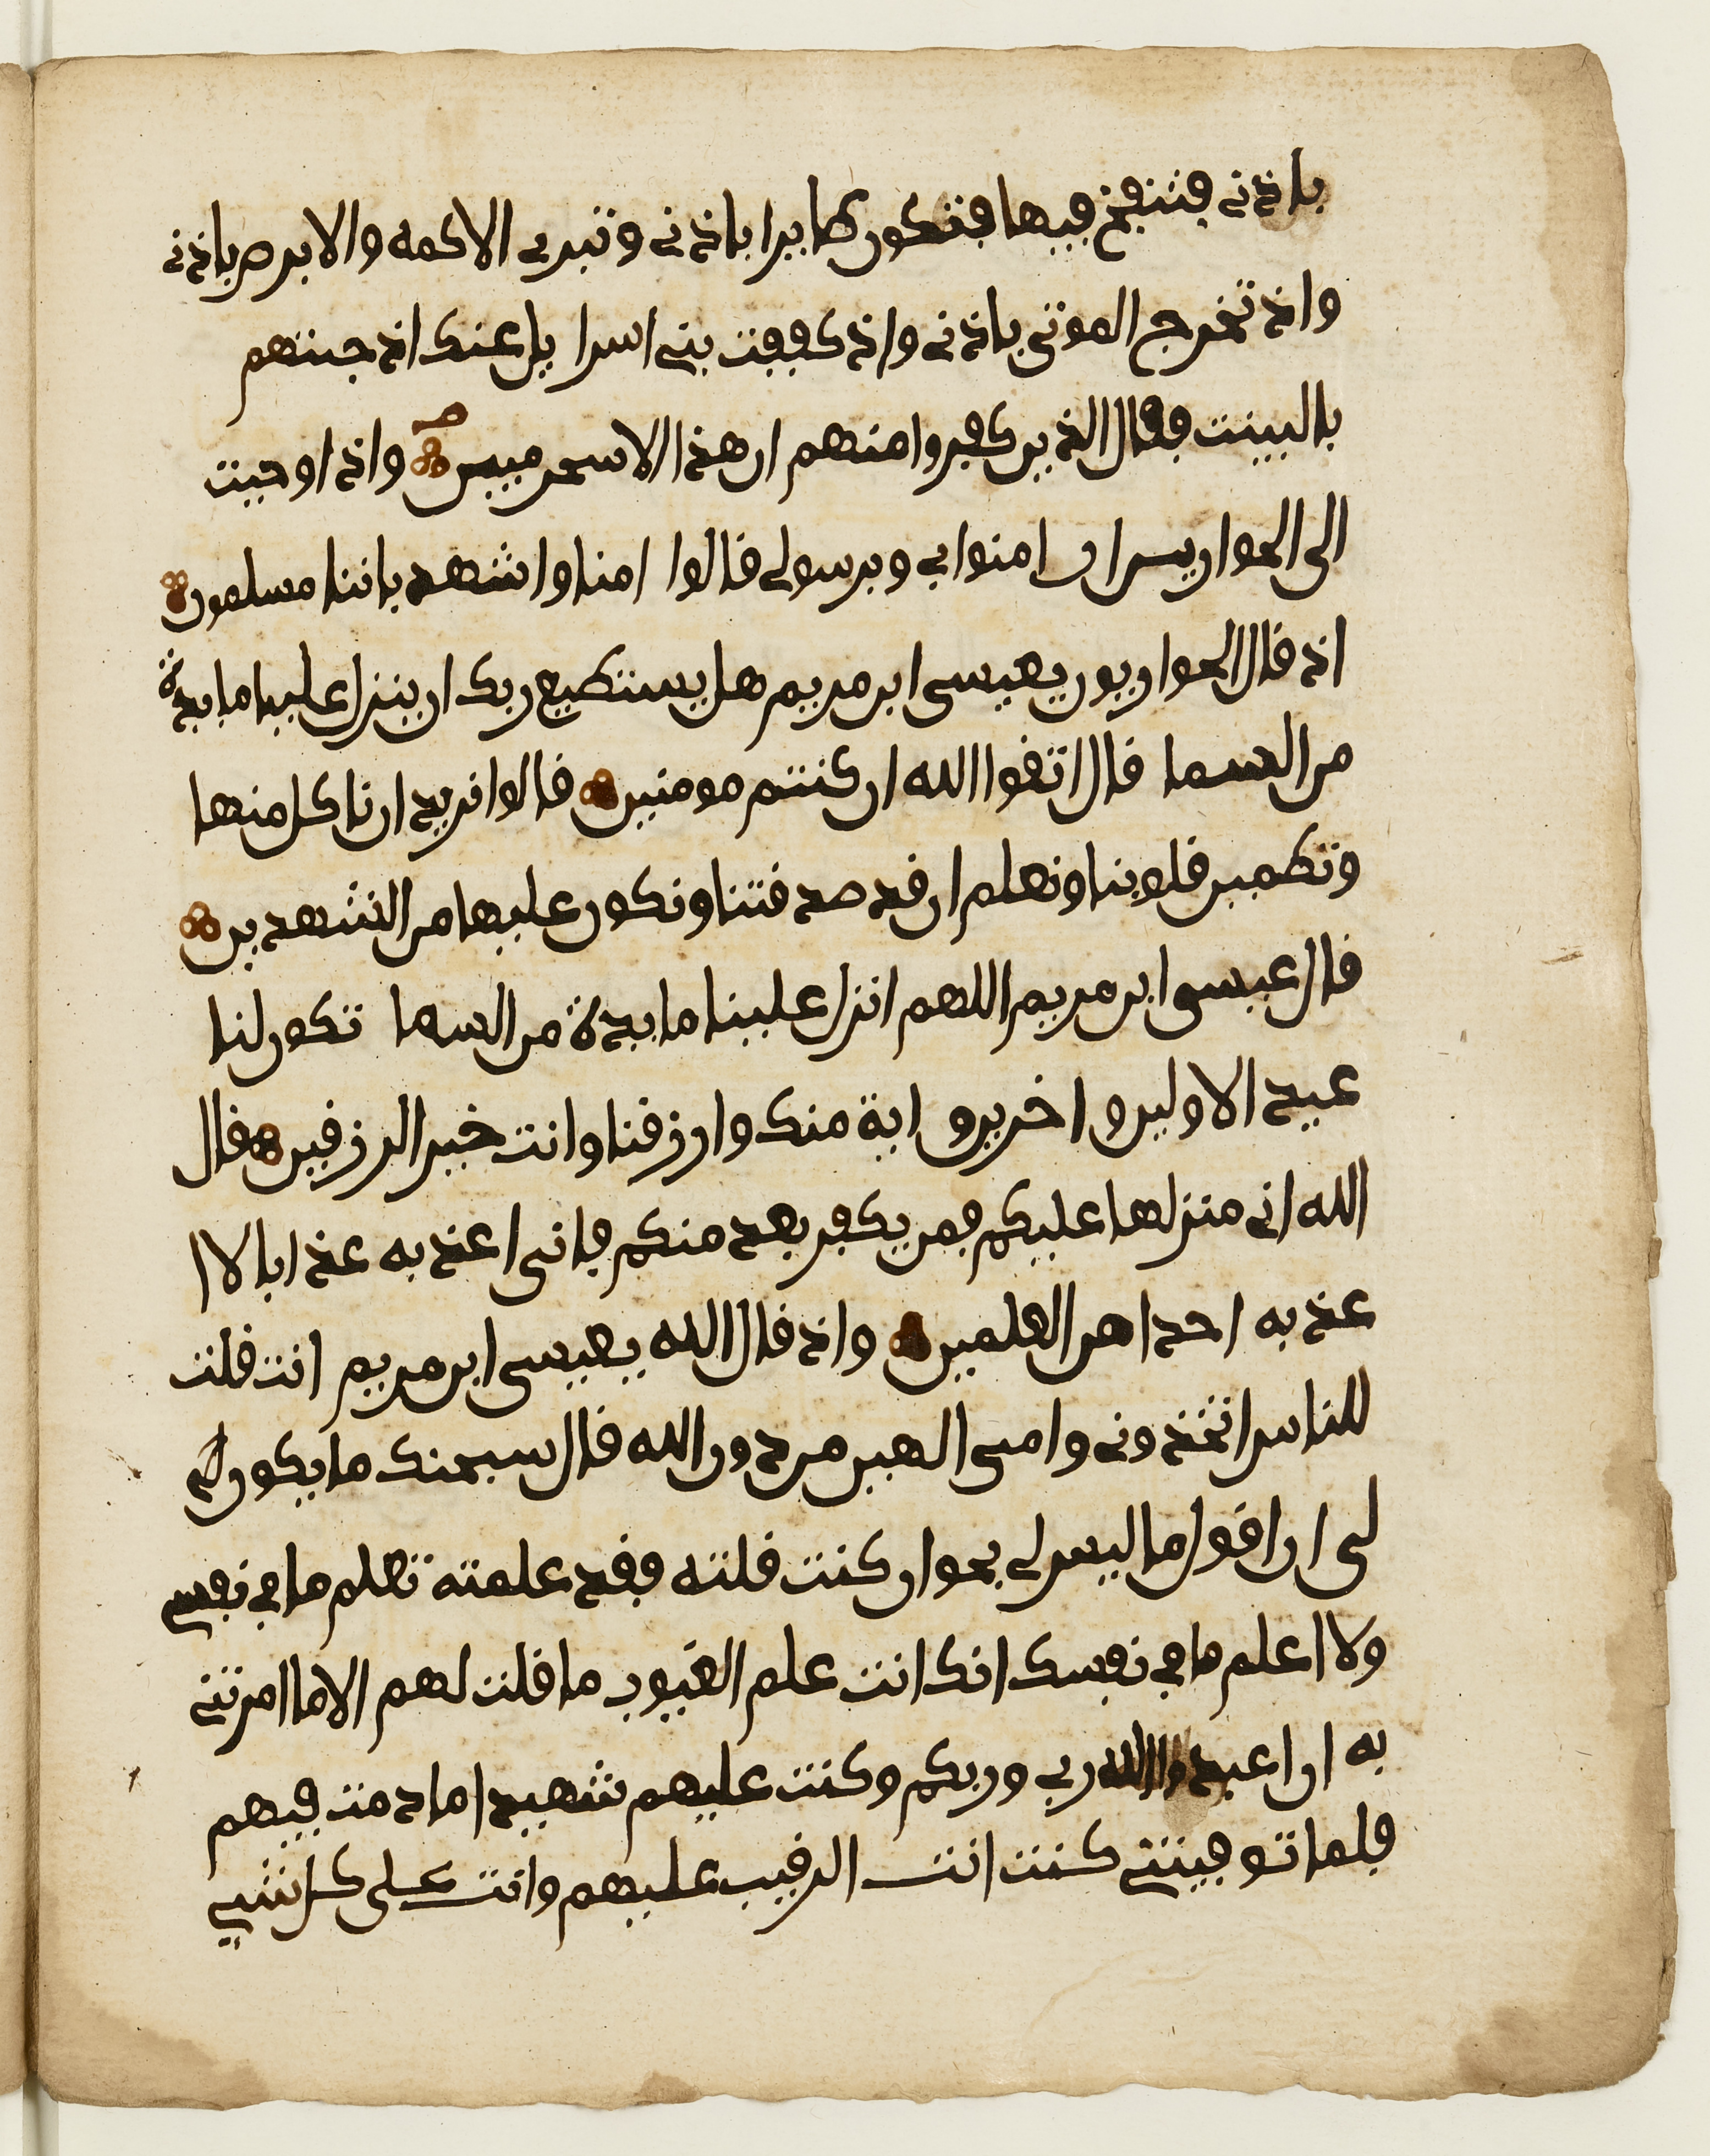 باذنى فتنفخ فيها فتكون طايرا باذنى وتبرى الاكمه والابرص باذنى
واذ تخرج الموتى باذنى واذ كففت بنى اسرايل عنك اذ جيتهم
بالبينت فقال الذين كفروا منهم ان هذا الا سحر مبين واذ اوحيت
الى الحوارين ان امنوا بى وبرسولى قالوا امنا واشهد باننا مسلمون
اذ قال الحواريون يعيسى ابن مريم هل يستطيع ربك ان ينزل علينا مايدة
من السما قال اتقوا الله ان كنتم مومنين قالوا نريد ان ناكل منها
وتطمين قلوبنا ونعلم ان قد صدقتنا ونكون عليها من الشهدين
قال عيسى ابن مريم اللهم انزل علينا مايدة من السما تكون لنا
عيدا لاولنا واخرنا واية منك وارزقنا وانت خير الرزقين قال
الله انى منزلها عليكم فمن يكفر بعد منكم فانى اعذبه عذابا لا ا
عذبه احدا من العلمين واذ قال الله يعيسى ابن مريم انت قلت
للناس اتخذونى وامى الهين من دون الله قال سبحنك ما يكون لى
لى ان اقول ما ليس لى بحق ان كنت قلته فقد علمته تعلم ما فى نفسى
ولا اعلم ما فى نفسك انك انت علم الغيوب ما قلت لهم الا ما امرتنى
به ان اعبدوا الله ربى وربكم وكنت عليهم شهيدا ما دمت فيهم
فلما توفيتنى كنت انت الرقيب عليهم وانت على كل شى